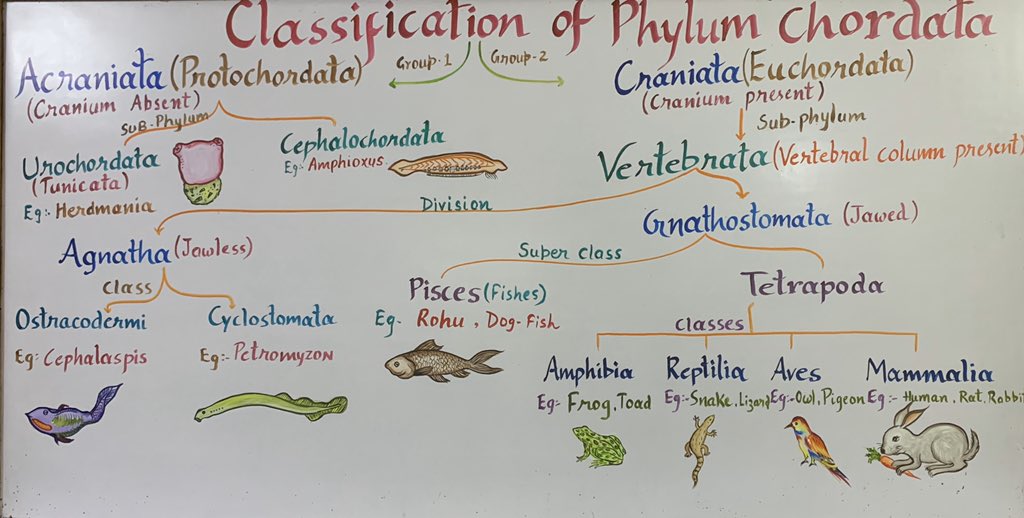 Classification of Phylum Chordata
Group-1 Group-2
Acraniata (Protochordata)
(Cranium Absent)
Sub-Phylum
Urochordata
(Tunicata)
Eg:- Herdmania
Cephalochordata
Eg:- Amphioxus
Craniata (Euchordata)
(Cranium present)
Sub-phylum
Vertebrata (Vertebral column present)
Division
Agnatha (Jawless)
Class
Ostracodermi
Eg: Cephalaspis
Cyclostomata
Eg:- Petromyzon
Gnathostomata (Jawed)
Super class
Pisces (Fishes)
Eg- Rohu, Dog-Fish
Tetrapoda
Classes
Amphibia
Eg:- Frog, Toad
Reptilia
Eg:- Snake, Lizard
Aves
Eg:- Owl, Pigeon
Mammalia
Eg:- Human, Rat, Rabbit